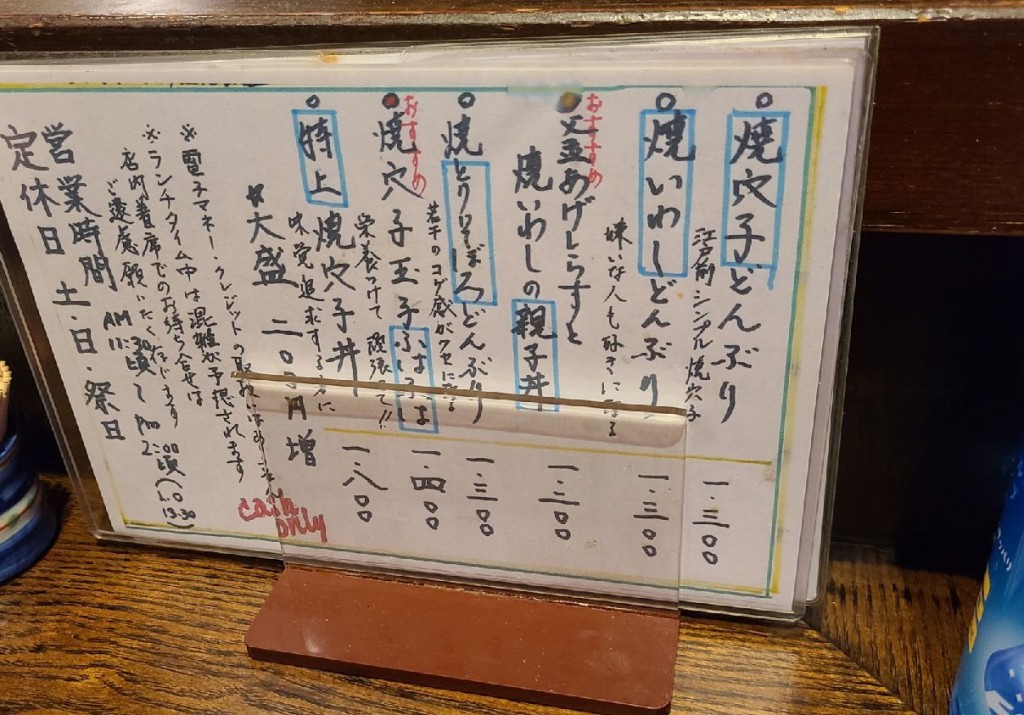 焼穴子どんぶり
江戸前シンプル焼穴子
一.三〇〇
焼いわしどんぶり
嫌いな人も好きになる
一.三〇〇
おすすめ
釜あげしらすと
焼いわしの親子丼
一.三〇〇
焼とりそぼろどんぶり
若干のコゲ感がクセになる
一.三〇〇
おすすめ
焼穴子玉子ふはふは
栄養つけて頑張て!!
一.四〇〇
特上焼穴子丼
味覚追求する方に
一.八〇〇
大盛 二〇〇円増
※電子マネー・クレジットの取扱いはありません
cash only
※ランチタイム中は混雑が予想されます
店内着席でのお待ち合せは
ご遠慮願いたく存じます
営業時間 AM 11:30頃~PM 2:00頃(L.O 13:30)
定休日 土・日・祭日